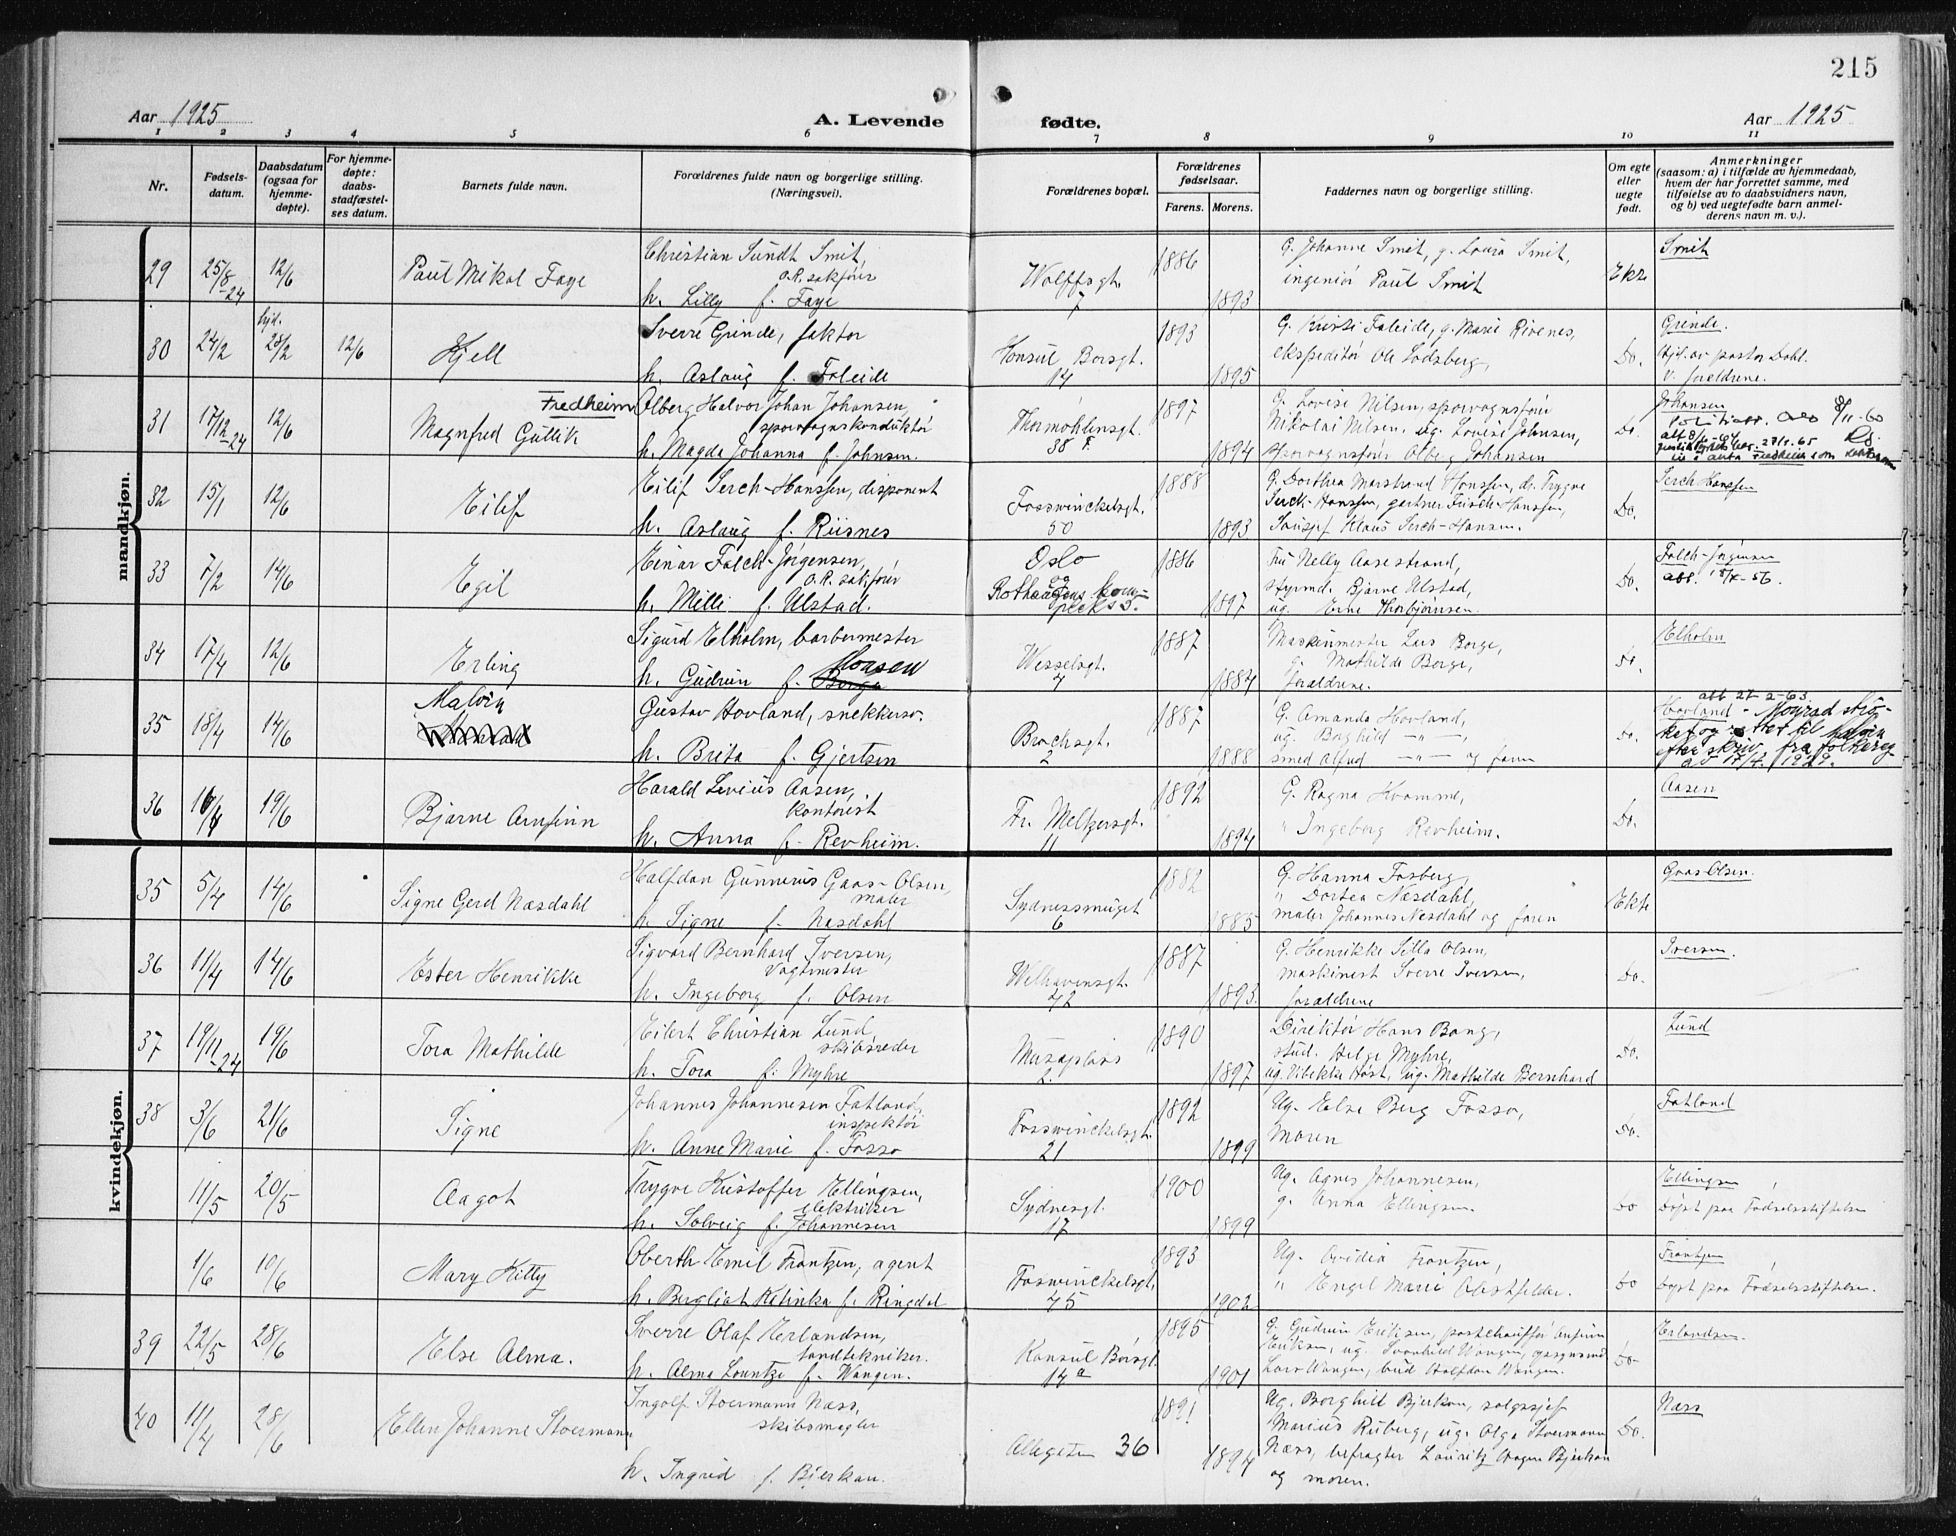 215
Aar 1925
A. Levende
fødte.
Aar 1925
1 2 3 4 5 6 7 8 9 10 11
Nr.
Fødsels-
datum.
Daabsdatum
(ogsaa for
hjemme-
døpte).
For hjemme-
døpte:
daabs-
stadfæstel-
ses datum.
Barnets fulde navn.
Forældrenes fulde navn og borgerlige stilling.
(Næringsvei).
Forældrenes bopæl.
Forældrenes
fødselsaar.
Farens. Morens.
Faddernes navn og borgerlige stilling.
Om egte
eller
uegte
født.
Anmerkninger
(saasom: a) i tilfælde av hjemmedaab,
hvem der har forrettet samme, med
tilføielse av to daabsvidners navn,
og b) ved uegtefødte barn anmel-
derens navn m. v.).
mandkjøn.
29 25/8-24 12/6
Paul Mikal Faye
Christian Sundt Smit,
O.R. sakfører
h. Lilly f. Faye
Wolffsgt.
7
1886
1893
G. Johanne Smit, g. Loura Smit,
ingeniør Paul Smit
Ekte
Smit
30 24/2 hjd. 25/2 12/6
Kjell
Sverre Grinde, faktor
h. Aslaug f. Faleide
Konsul Børsgt.
14
1893
1895
G. Kristi Faleide, g. Marie Rivenes,
ekspeditør Ole Lødsberg,
Do.
Grinde.
Hjd. av pastor Dahl.
v. forældrene.
31 17/12-24 12/6
Fredheim
Magnfred Gullik
Olberg Halvor Johan Johansen,
sporvognskonduktør
h. Magda Johanna f. Johnsen.
Thormøhlensgt.
38 F.
1897
1894
G. Lovise Nilsen, sporvognsfører
Nikolai Nilsen, ug. Lovise Johnsen,
Sporvognsfører Olberg Johansen
Do.
Johansen
32 15/1 12/6
Eilif
Eilif Serch-Hanssen, disponent
h. Aslaug f. Riisnes
Fosswinckelsgt.
50
1888
1893
G. Dorthea Marstrand Hanssen, dr. Trygve
Serch-Hanssen, gartner
Klaus Serch-Hansen.
Do.
Serch Hanssen
33 7/2 14/6
Egil
Einar Falch-Jørgensen,
O.R. sakfører
h. Milli f. Ulstad.
Oslo
1886
1897
Fru Nelly Aasestrand,
styrmd. Bjarne Ulstad,
ug. Erne Thorbjørnsen.
Do.
Falch-Jørgensen
34 17/4 12/6
Erling
Sigurd Elholm, barbermester
Monsen
h. Gudrun f. Borge
Wesselsgt.
7
1887
1884
Maskinmester Lars Borge,
G. Mathilde Borge,
forældrene.
Do.
Elholm
35 18/4 14/6
Malvin
Gustav Hovland, snekkersv.
h. Brita f. Gjertsen
Brochsgt.
2
1887
1888
G. Amanda Hovland,
ug. Borghild —"—,
smed Alfred —"— og faren
Do.
att 27-2-63.
Hovland - Monrad strø-
ket og rettet til Malvin
efter skriv. fra folkereg.
av 17/4 1929.
36 16/4 19/6
Bjarne Arnfinn
Harald Levius Aasen,
kontorist
h. Anna f. Revheim.
Fr. Meltzersgt.
11
1892
1894
G. Ragna Kvamme,
" Ingeborg Revheim.
Do.
Aasen
kvindekjøn.
35 5/4 14/6
Signe Gerd Næsdahl
Halfdan Gunnerius Gaas-Olsen,
maler
h. Signe f. Næsdahl
Sydnessmuget
6
1882
1885
G. Hanna Fosberg,
" Dortea Næsdahl,
maler Johannes Næsdahl og faren
Ekte
Gaas Olsen.
36 11/4 14/6
Ester Henrikke
Sigvard Bernhard Iversen,
vagtmester
h. Ingeborg f. Olsen
Welhavensgt.
72
1887
1893
G. Henrikke Silla Olsen,
maskinist Sverre Iversen,
forældrene
Do.
Iversen.
37 19/11-24 19/6
Tora Mathilde
Eilert Christian Lund
skibsreder
h. Tora f. Myhre
Muséplass
2.
1890
1897
Direktør Hans Bang,
stud. Helge Myhre,
ug. Vibekke Høst, ug. Mathilde Bernhard
Do.
Lund
38 3/6 21/6
Signe
Johannes Johannesen Fatland,
inspektør
h. Anne Marie f. Fosso
Fosswinckelsgt.
21
1892
1899
Ug. Else Berg Fosso,
Moren
Do.
Fatland
11/5 20/5
Aagot
Trygve Kristoffer Ellingsen,
elektriker
h. Solveig f. Johannesen
Sydnesgt.
17
1900
1899
Ug. Agnes Johannesen,
g. Anna Ellingsen.
Do
Ellingsen
Døpt paa Fødselsstiftelsen
1/6 10/6
Mary Kitty
Oberth Emil Frantzen, agent
h. Bergliot Katinka f. Ringdal
Foswinckelsgt.
45
1893
1902
Ug. Ovidia Frantzen,
" Engel Marie Obstfelder.
Do
Frantzen
Døpt paa Fødselsstiftelsen.
39 22/5 28/6
Else Alma.
Sverre Olaf Erlandsen,
tandtekniker.
h. Alma Launtze f. Wangen.
Konsul Børsgt.
14 a
1895
1901
G. Gudrun Eriksen, postchauffør Arnfinn
Eriksen, ug. Svanhild Wangen,
Lars Wangen, bud Halfdan Wangen.
Do
Erlandsen.
40 11/4 28/6
Ellen Johanne Stoermann
Ingolf Stoermann Næss,
skibsmegler
h. Ingrid f. Bjerkan.
Allegaten 36
1891
1894
Ug. Borghild Bjerkan, salgssjef
Marius Ruberg, ug. Olga Stoermann
Næss, befragter Lauritz Aagen Bjerkan
og moren.
Do.
Næss